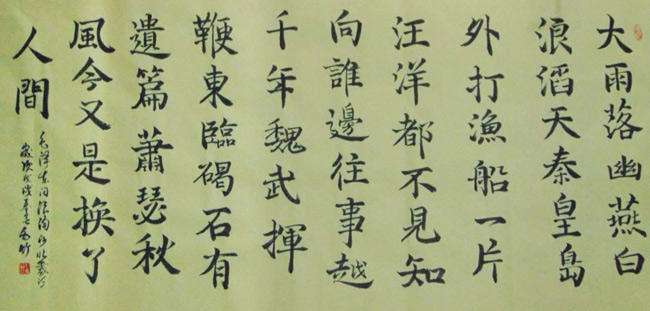 大雨落幽燕白
浪滔天秦皇島
外打漁船一片
汪洋都不見知
向誰邊往事越
千年魏武揮
鞭東臨碣石有
遺篇蕭瑟秋
風今又是换了
人間
毛澤東词浪淘沙北戴河